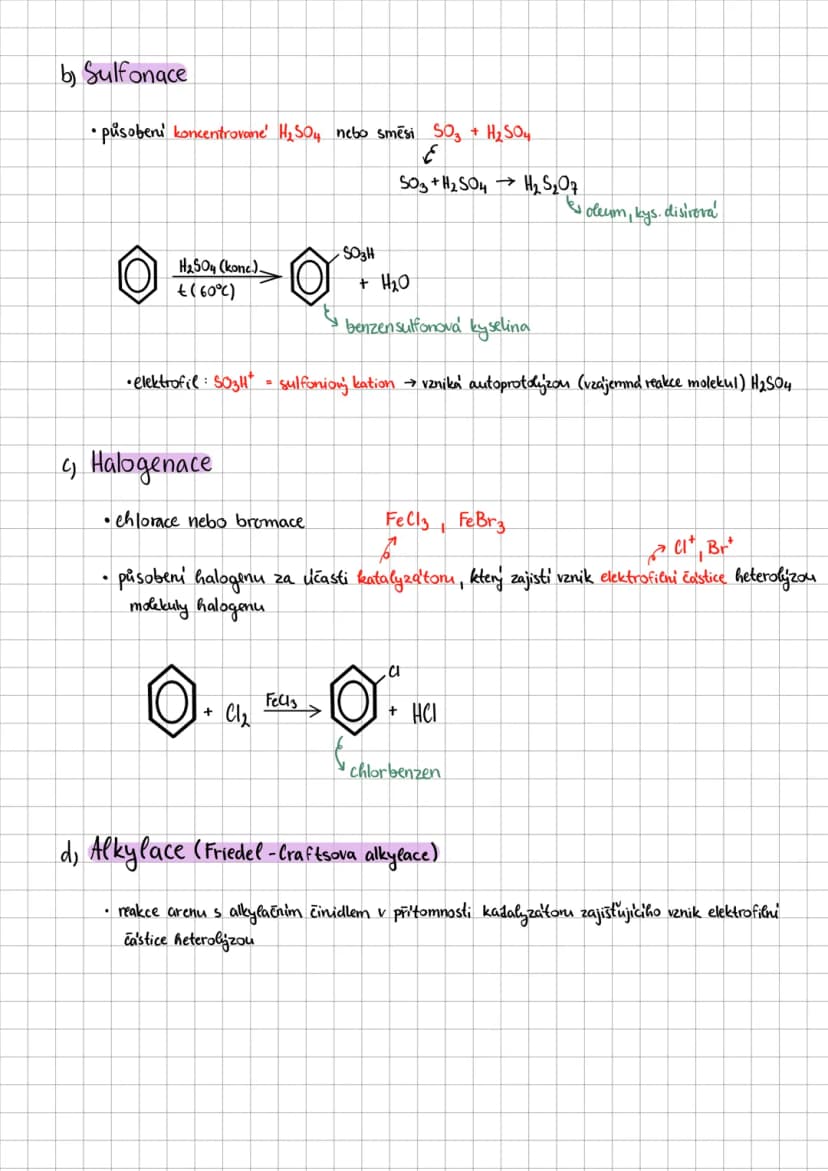 b) Sulfonace
• působení koncentrované H₂SO₄ nebo směsi SO₃ + H₂SO₄
SO₃ + H₂SO₄ → H₂S₂O₇
oleum, kys. disírová
H₂SO₄ (konc.)
t (60°C)
SO₃H
+ H₂O
benzensulfonová kyselina
• elektrofil : SO₃H⁺ = sulfoniový kation → vzniká autoprotolýzou (vzájemná reakce molekul) H₂SO₄
c) Halogenace
• chlorace nebo bromace
FeCl₃ , FeBr₃
Cl⁺, Br⁺
• působení halogenu za účasti katalyzátoru, který zajistí vznik elektrofilní částice heterolýzou
molekuly halogenu
+ Cl₂
FeCl₃
Cl
+ HCl
chlorbenzen
d) Alkylace (Friedel-Craftsova alkylace)
• reakce arenu s alkylačním činidlem v přítomnosti katalyzátoru zajišťujícího vznik elektrofilní
částice heterolýzou